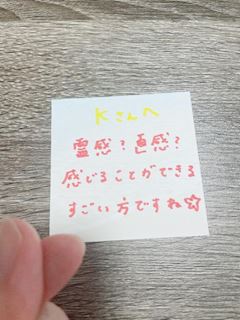 Kさんへ
霊感?直感?
感じることができる
すごい方ですね☆